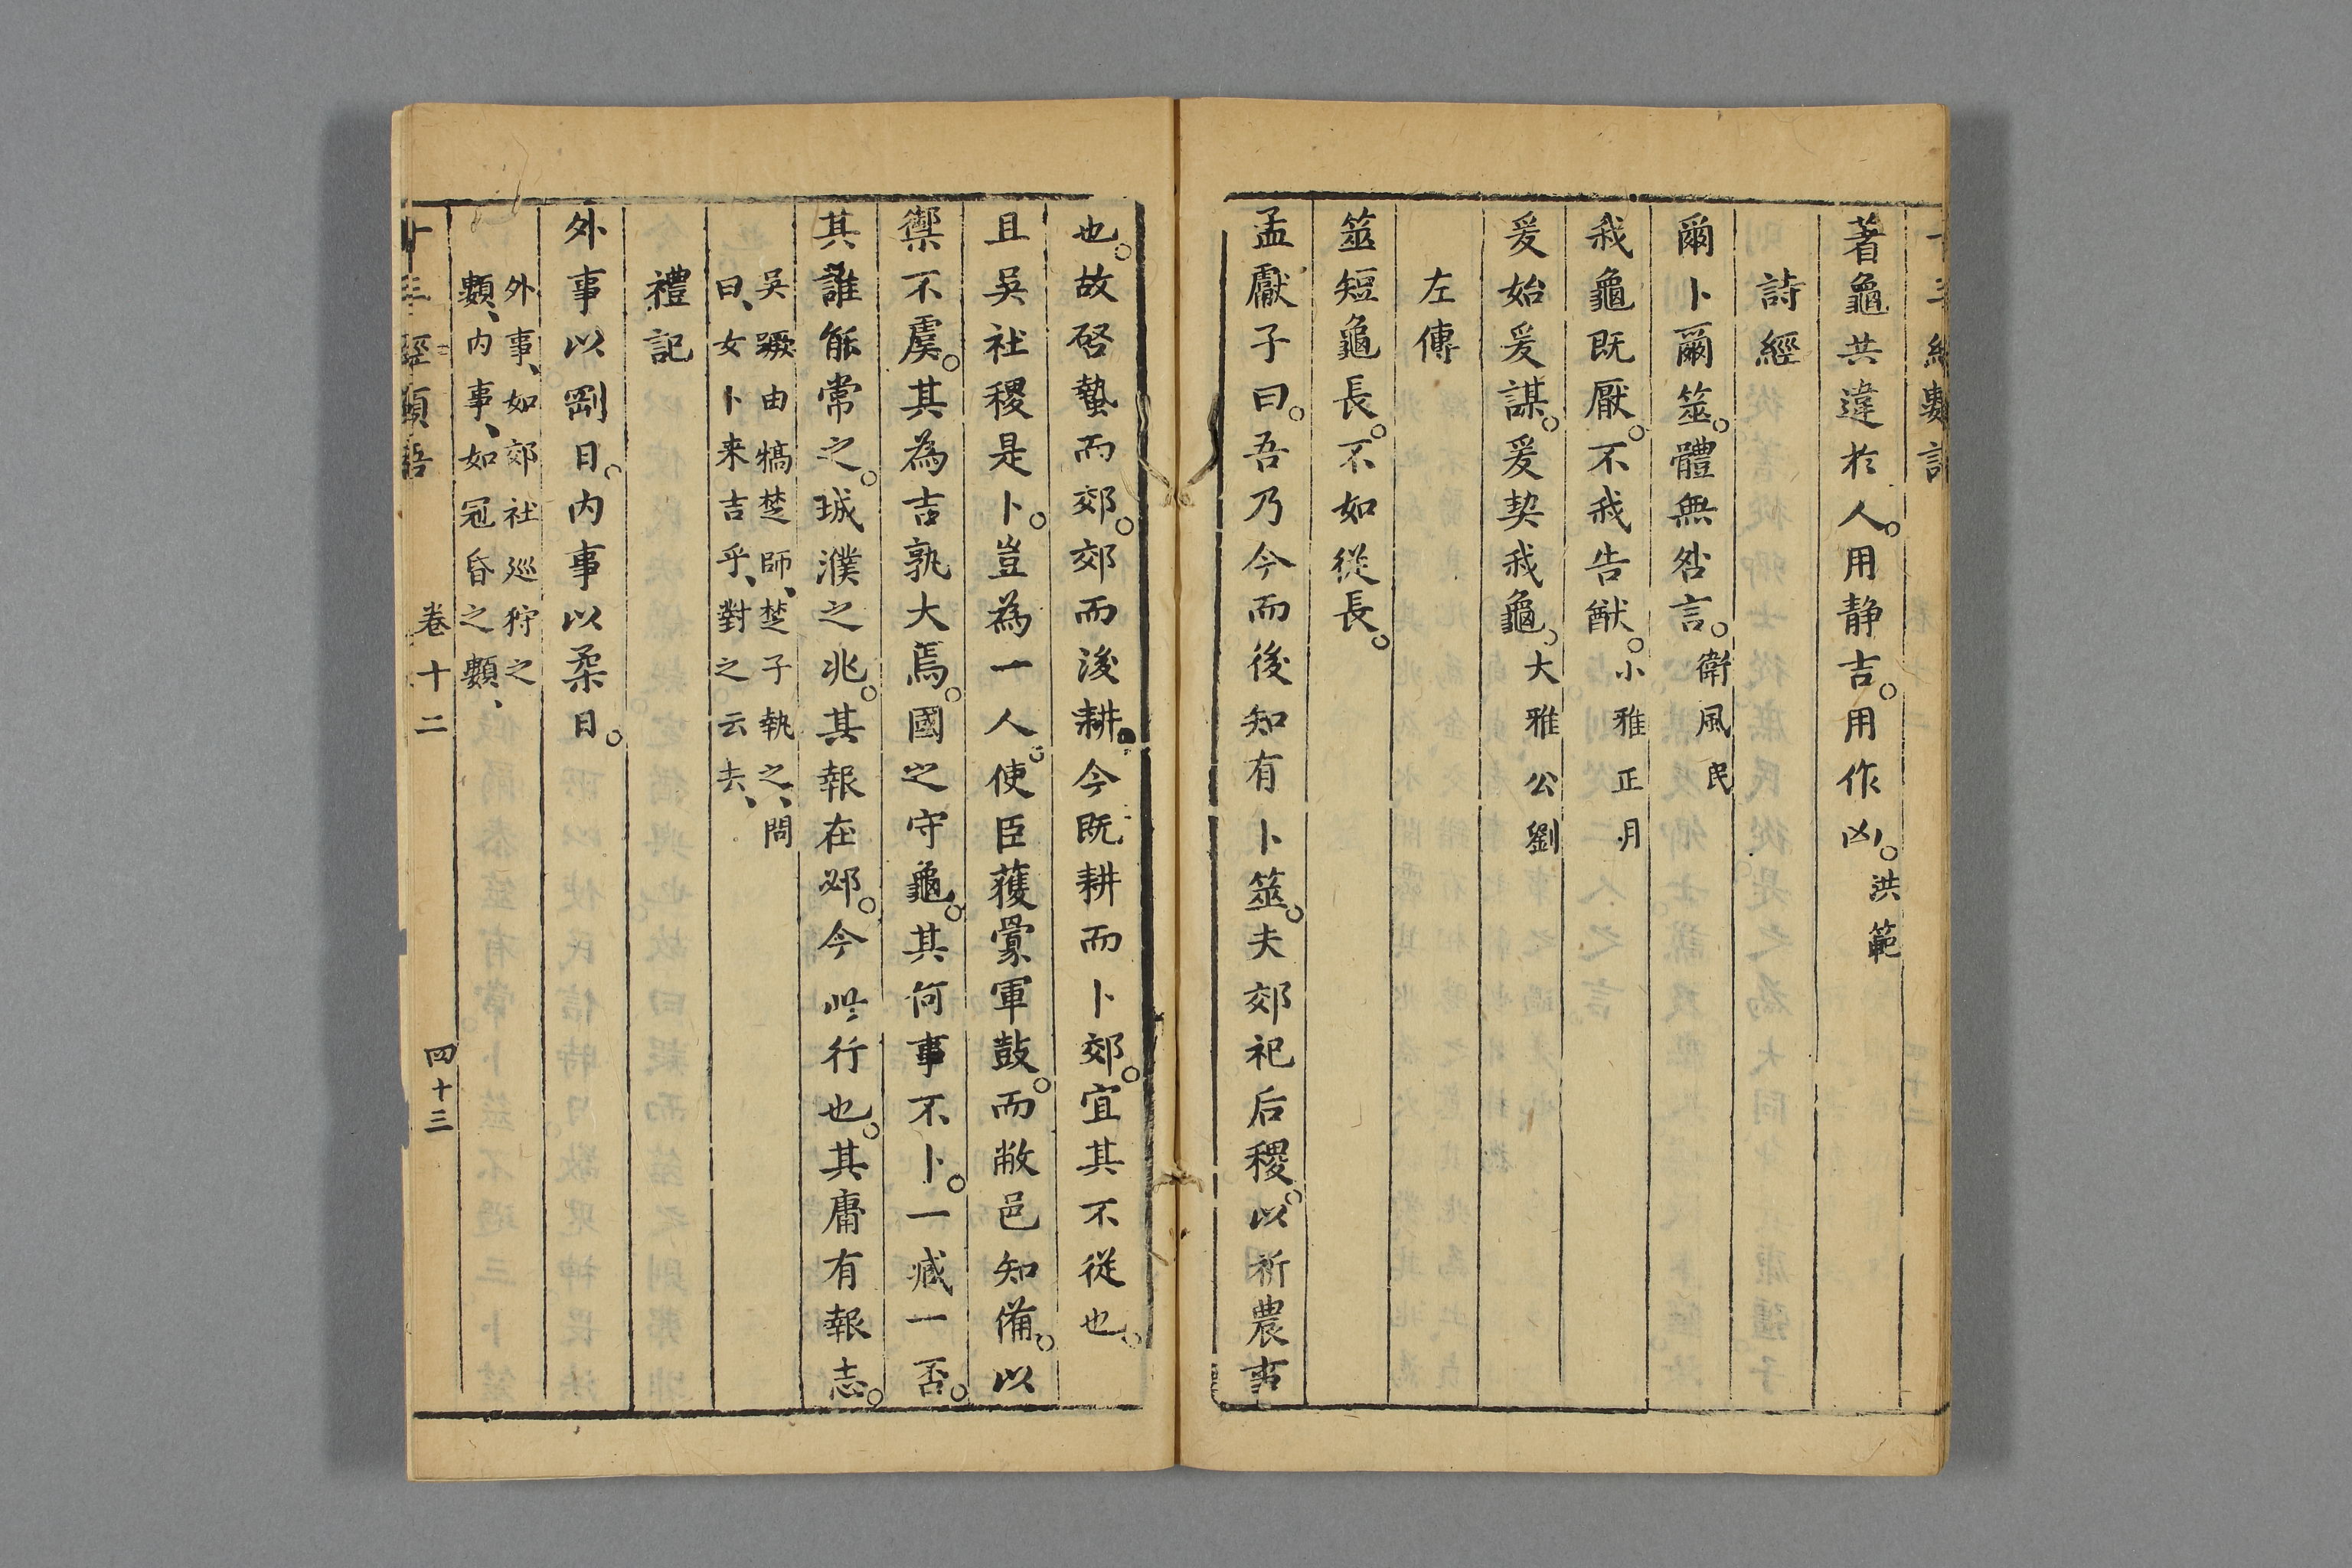 蓍龜共違於人。用静吉。用作凶。洪範
詩經
爾卜爾筮。體無咎言。衛風氓
我龜既厭。不我告猷。小雅正月
爰始爰謀。爰契我龜。大雅公劉
左傳
筮短龜長。不如從長。
孟獻子曰。吾乃今而後知有卜筮。夫郊祀后稷。以祈農事
也。故啓蟄而郊。郊而後耕。今既耕而卜郊。宜其不從也。
且吳社稷是卜。豈為一人。使臣獲釁軍鼓。而敝邑知備。以
禦不虞。其為吉孰大焉。國之守龜。其何事不卜。一臧一否。
其誰能常之。城濮之兆。其報在邲。今此行也。其庸有報志。
吳蹶由犒楚師、楚子執之、問
曰、女卜来吉乎、對之云夫、
禮記
外事以剛日。内事以柔日。
外事、如郊社巡狩之
類、内事、如冠昏之類、
十三經類語 卷十二 四十三